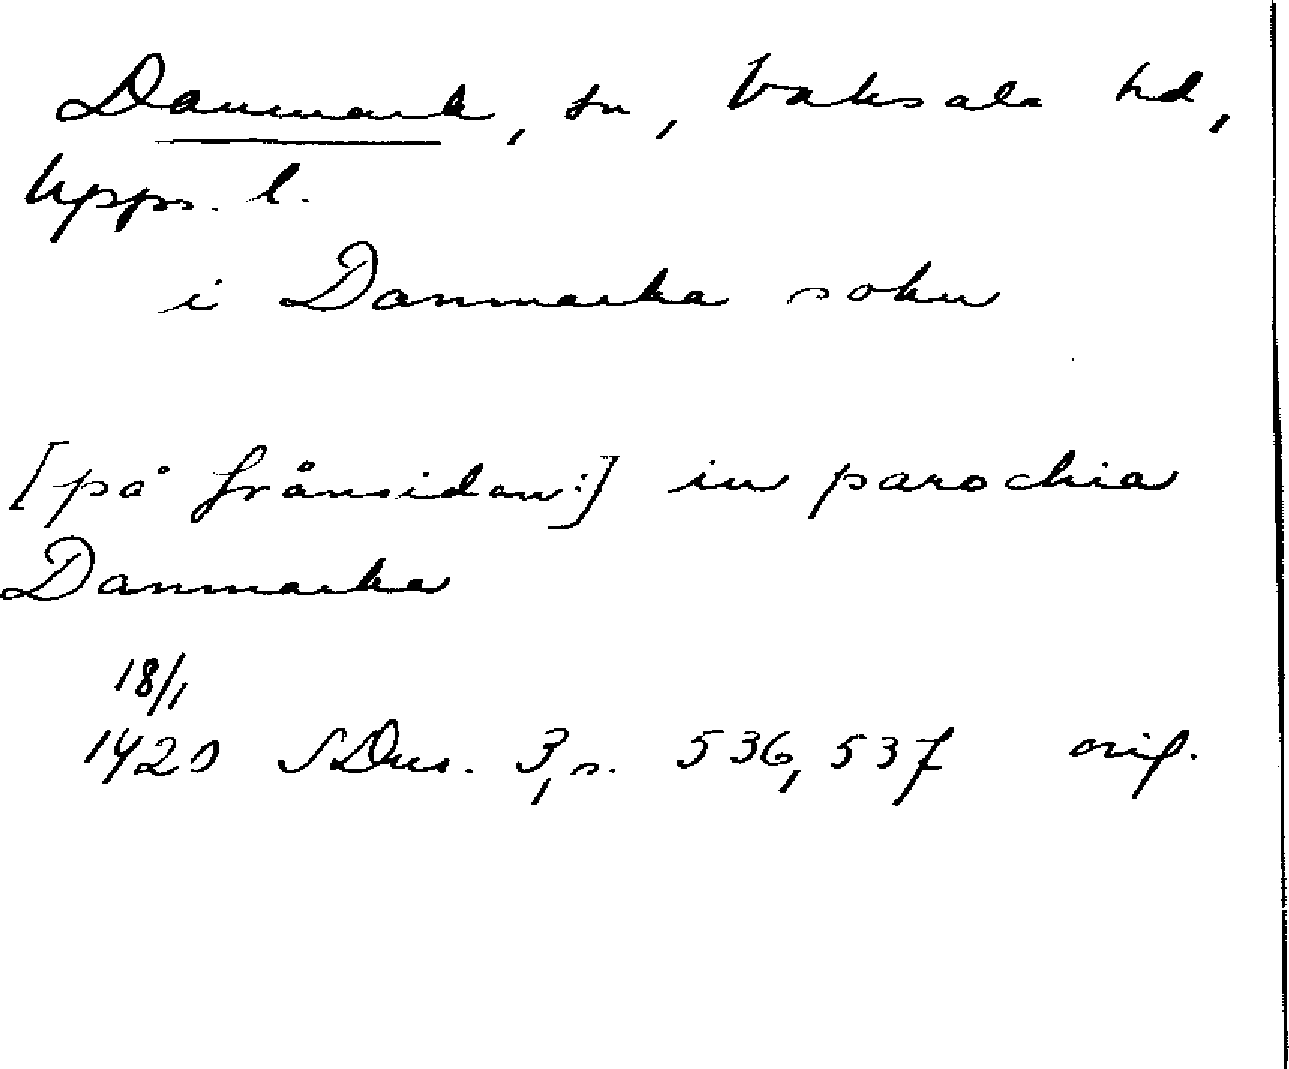 Danmark, sn, Vaksala hd,
Upps. l.
i Danmarka sokn
[på frånsidan:] in parochia
Danmarka
18/1
1420 SDns. 3, s. 536, 537 orig.